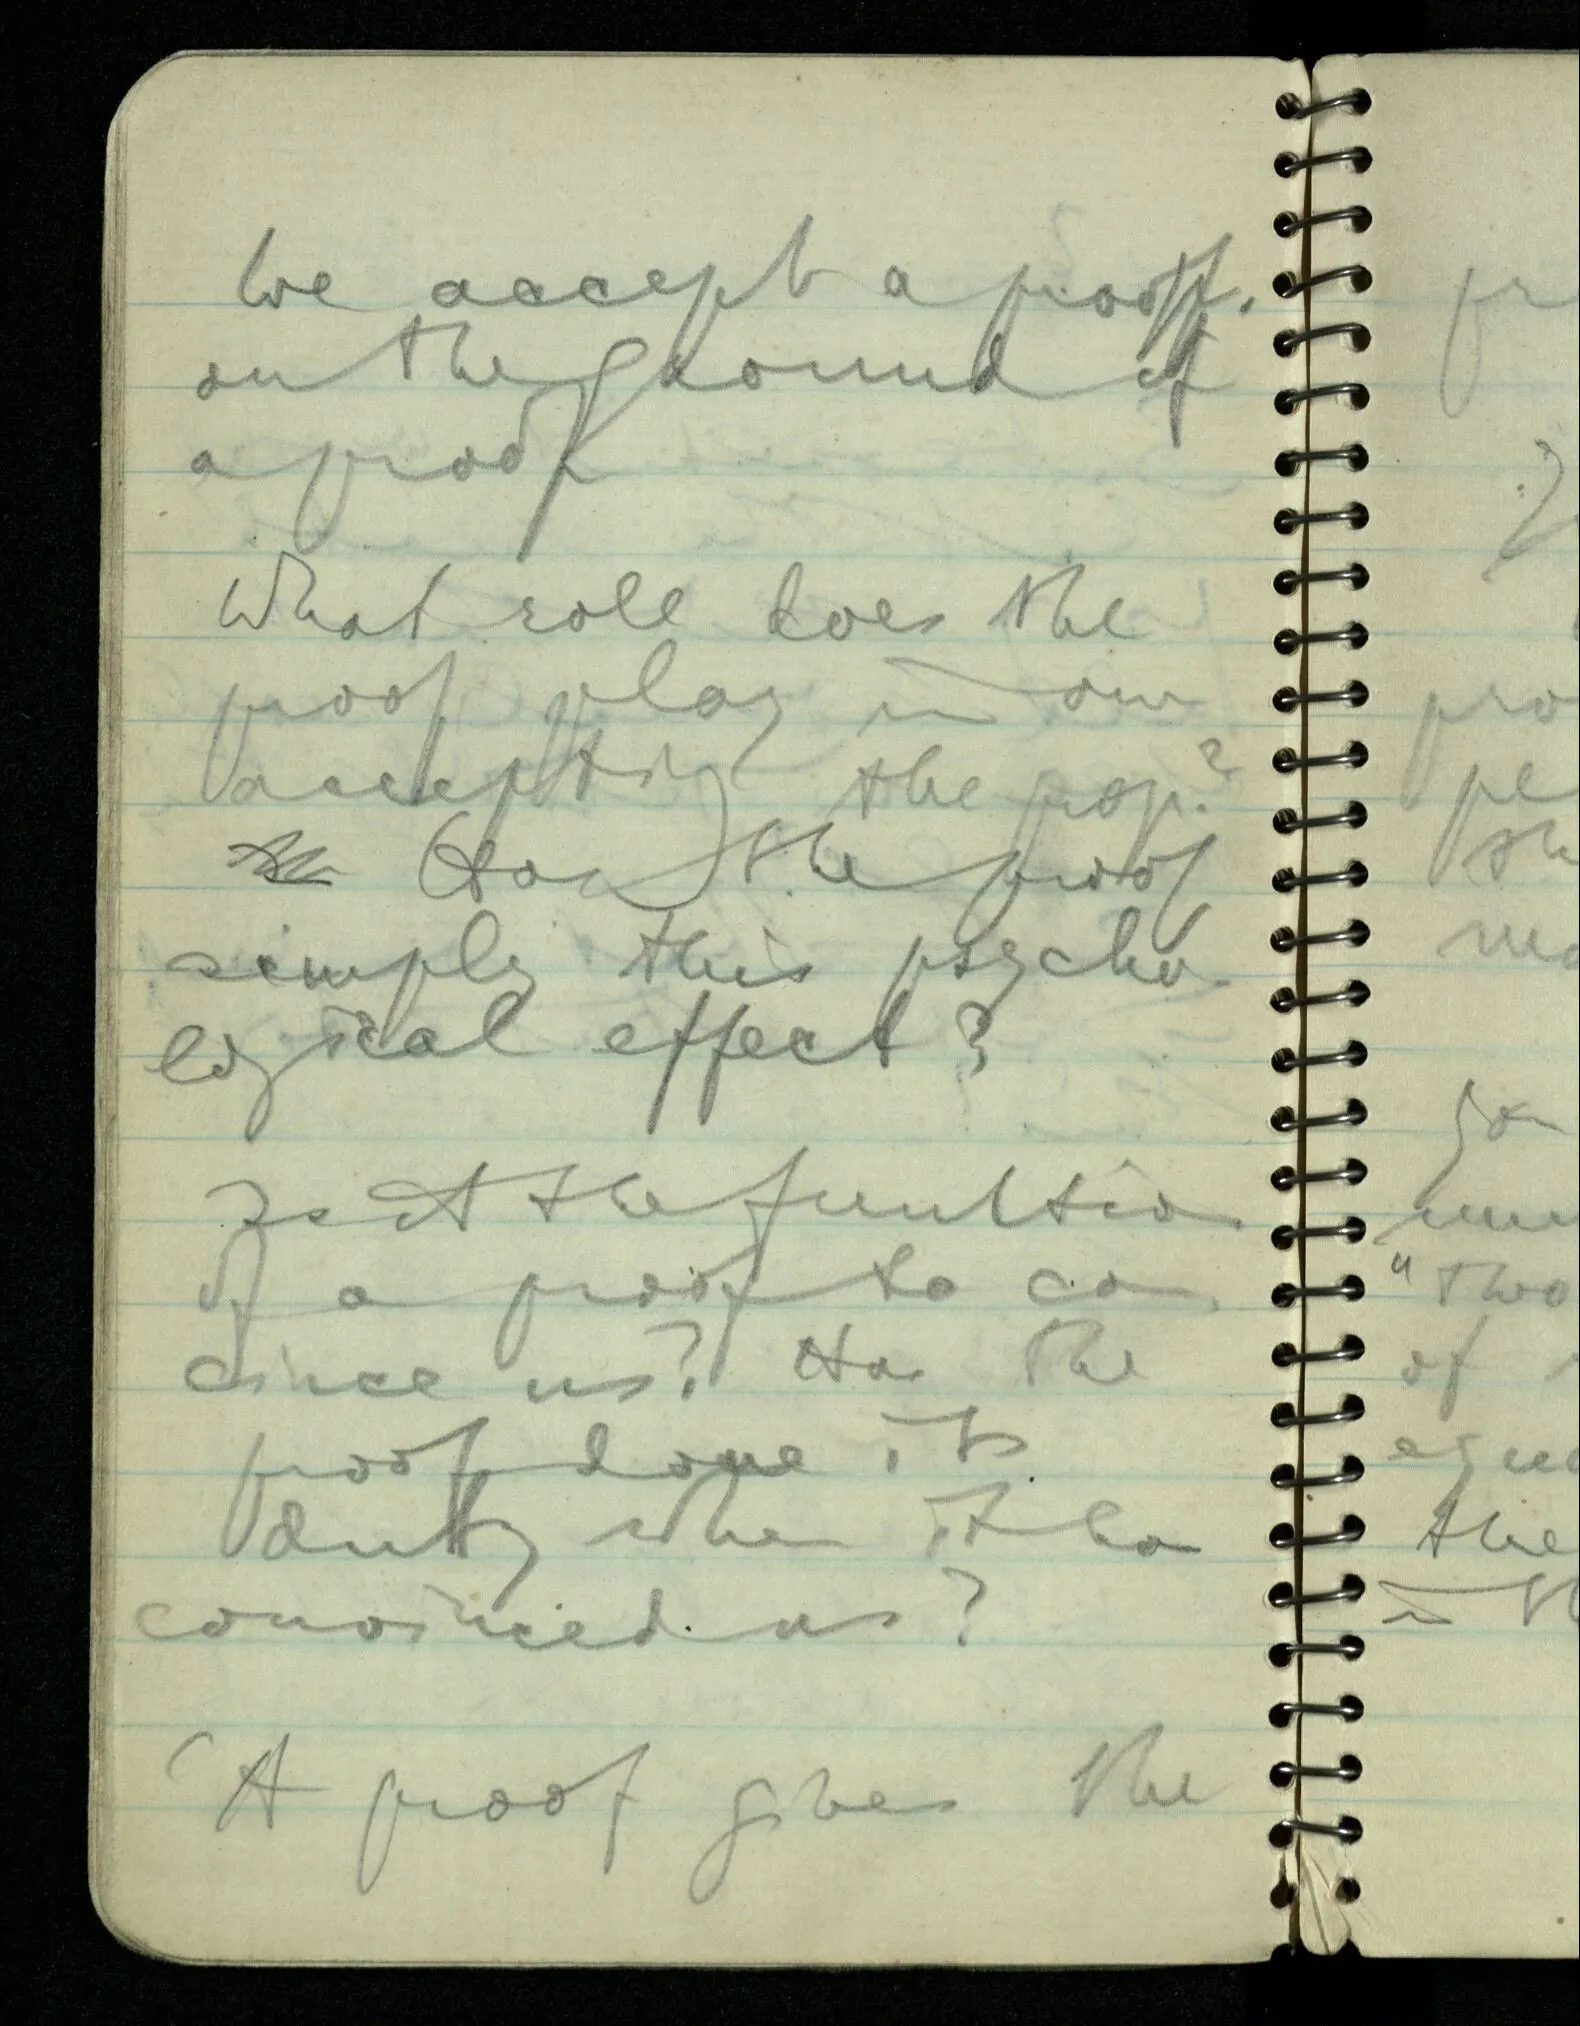 We accept a proof.
on the ground of
a proof
What role does the
proof play in our
accepting the prop.?
Has the proof
simply this psycho-
logical effect?
Is it the function
of a proof to con-
vince us? Has the
proof done its
duty when it has
convinced us?
'A proof gives the
pro
pe
"two
of
equ
the
in th